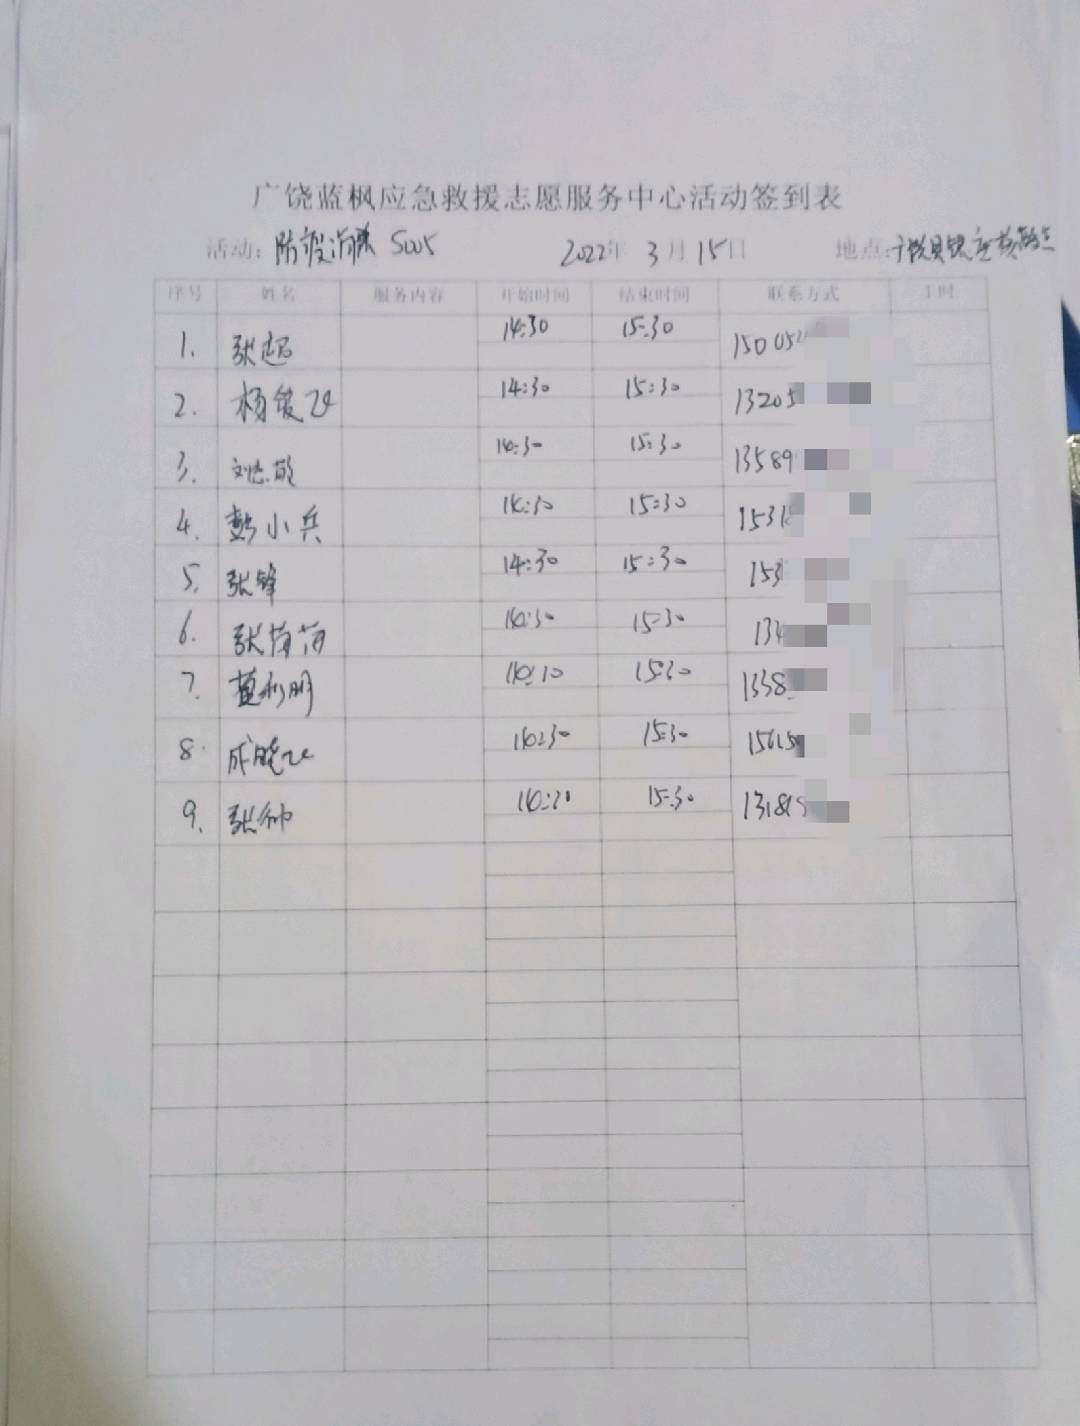 广饶蓝枫应急救援志愿服务中心活动签到表
活动: 防疫消 S005 2022年 3月15日 地点:
序号 姓名 服务内容 开始时间 结束时间 联系方式 工时
1. 张超 14:30 15:30 15005
2. 杨俊飞 14:30 15:30 13205
3. 14:30 15:30 13589
4. 彭小兵 14:30 15:30 1531
5. 张锋 14:30 15:30 153
6. 张 14:30 15:30 134
7. 董利明 14:10 15:30 1338
8. 成晓飞 14:30 15:30 15615
9. 张帅 15:30 13181